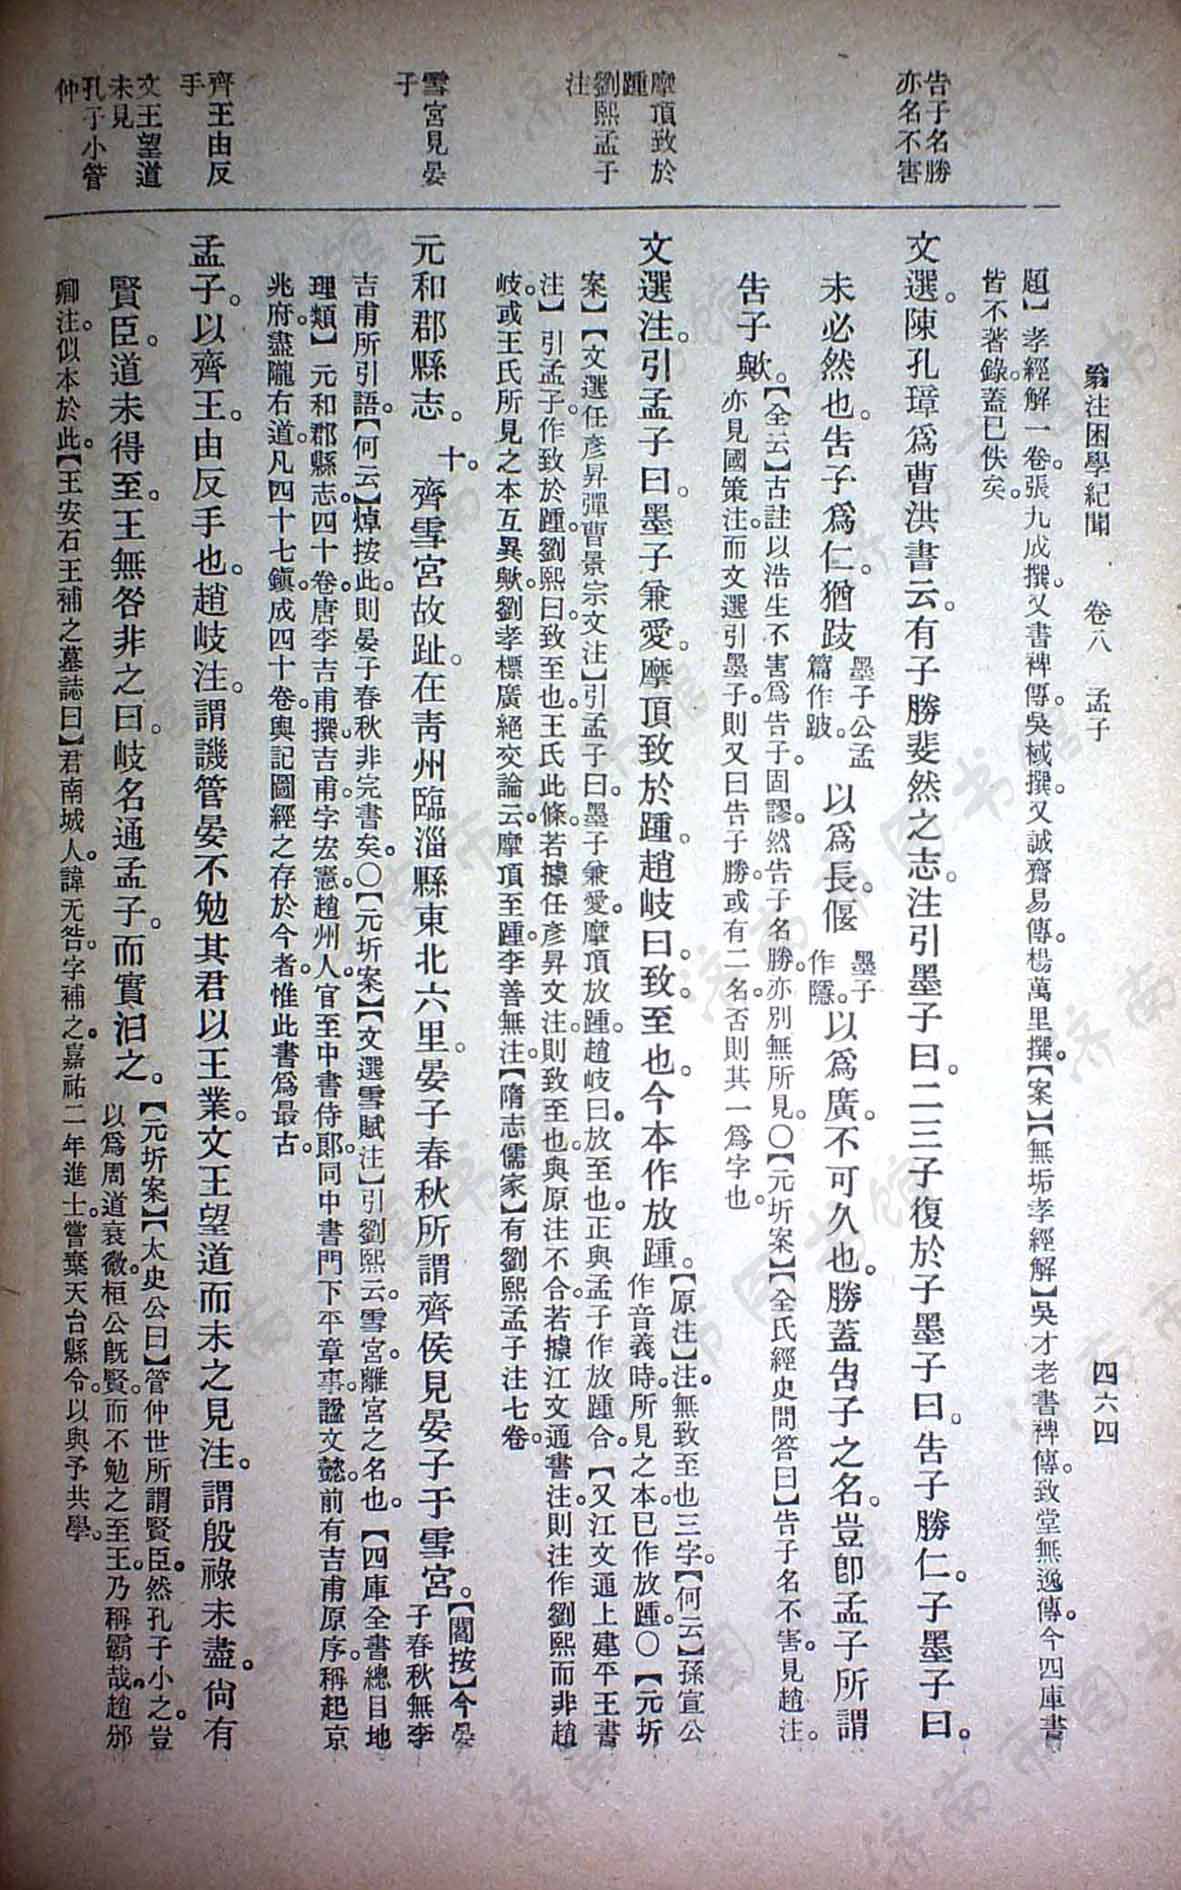 翁注困學紀聞　卷八　孟子　四六四
題】孝經解一卷。張九成撰。又書裨傳。吳棫撰。又誠齋易傳。楊萬里撰。【案】【無垢孝經解】吳才老書裨傳。致堂無逸傳。今四庫書
皆不著錄。蓋已佚矣。
告子名勝
亦名不害
文選。陳孔璋爲曹洪書云。有子勝斐然之志。注引墨子曰。二三子復於子墨子曰。告子勝仁。子墨子曰。
未必然也。告子爲仁。猶跂
墨子公孟
篇作跛。
以爲長。偃
墨子
作隱。
以爲廣。不可久也。勝蓋告子之名。豈卽孟子所謂
告子歟。
【全云】古註以浩生不害爲告子。固謬。然告子名勝。亦別無所見。〇【元圻案】【全氏經史問答曰】告子名不害。見趙注。
亦見國策注。而文選引墨子。則又曰告子勝。或有二名。否則其一爲字也。
摩頂致於
踵
劉熙孟子
注
文選注。引孟子曰。墨子兼愛。摩頂致於踵。趙岐曰。致。至也。今本作放踵。
【原注】注。無致至也三字。【何云】孫宣公
作音義時。所見之本。已作放踵。〇【元圻
案】【文選任彥昇彈曹景宗文注】引孟子曰。墨子兼愛。摩頂放踵。趙岐曰。放。至也。正與孟子作放踵合。【又江文通上建平王書
注】引孟子。作致於踵。劉熙曰。致至也。王氏此條。若據任彥昇文注。則致至也。與原注不合。若據江文通書注。則注作劉熙而非趙
岐。或王氏所見之本互異歟。劉孝標廣絕交論云。摩頂至踵。李善無注。【隋志儒家】有劉熙孟子注七卷。
雪宮見晏
子
元和郡縣志。十。齊雪宮故趾。在青州臨淄縣東北六里。晏子春秋所謂齊侯見晏子于雪宮。
【閻按】今晏
子春秋無李
吉甫所引語。【何云】焯按此則晏子春秋非完書矣。〇【元圻案】【文選雪賦注】引劉熙云。雪宮。離宮之名也。【四庫全書總目地
理類】元和郡縣志。四十卷。唐李吉甫撰。吉甫字宏憲。趙州人。官至中書侍郎。同中書門下平章事。諡文懿。前有吉甫原序。稱起京
兆府。盡隴右道。凡四十七鎭。成四十卷。輿記圖經之存於今者。惟此書爲最古。
齊王由反
手
孟子。以齊王。由反手也。趙岐注。謂譏管晏不勉其君以王業。文王望道而未之見。注。謂殷祿未盡。尙有
文王望道
未見
孔子小管
仲
賢臣。道未得至。王無咎非之曰。岐名通孟子。而實汩之。
【元圻案】【太史公曰】管仲世所謂賢臣。然孔子小之。豈
以爲周道衰微。桓公旣賢。而不勉之至王。乃稱霸哉。趙邠
卿注。似本於此。【王安石王補之墓誌曰】君南城人。諱无咎。字補之。嘉祐二年進士。嘗棄天台縣令。以與予共學。